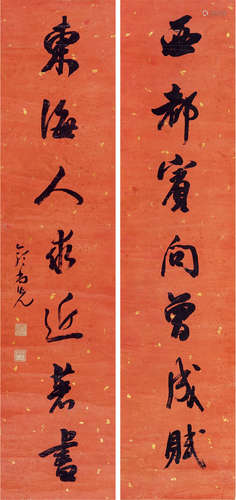 西都賓向曾成賦
東海人求近著書